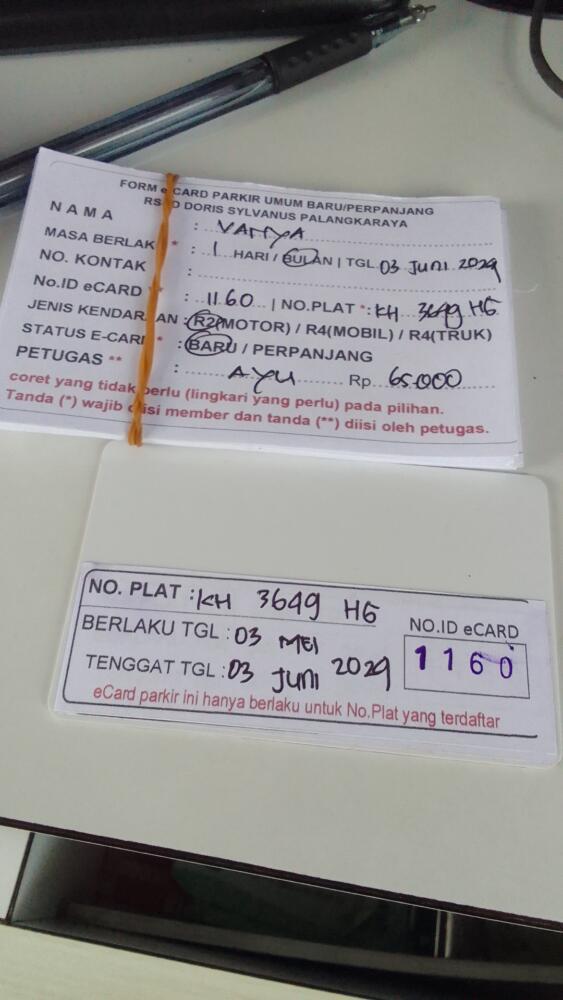 FORM e CARD PARKIR UMUM BARU/PERPANJANG
RS D DORIS SYLVANUS PALANGKARAYA
NAMA : VANYA
MASA BERLAK * : 1 HARI / BULAN | TGL 03 JUNI 2029
NO. KONTAK :
No.ID eCARD ** : 1160 | NO.PLAT * : KH 3649 HG
JENIS KENDAR AN : R2(MOTOR) / R4(MOBIL) / R4(TRUK)
STATUS E-CAR * : BARU / PERPANJANG
PETUGAS ** : AYU Rp. 65.000
coret yang tidak perlu (lingkari yang perlu) pada pilihan.
Tanda (*) wajib diisi member dan tanda (**) diisi oleh petugas.
NO. PLAT : KH 3649 HG
BERLAKU TGL : 03 MEI
NO.ID eCARD
TENGGAT TGL : 03 JUNI 2029
1160
eCard parkir ini hanya berlaku untuk No.Plat yang terdaftar